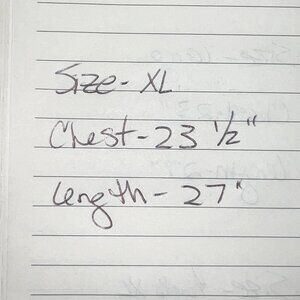 Size - XL
Chest - 23 1/2"
length - 27"